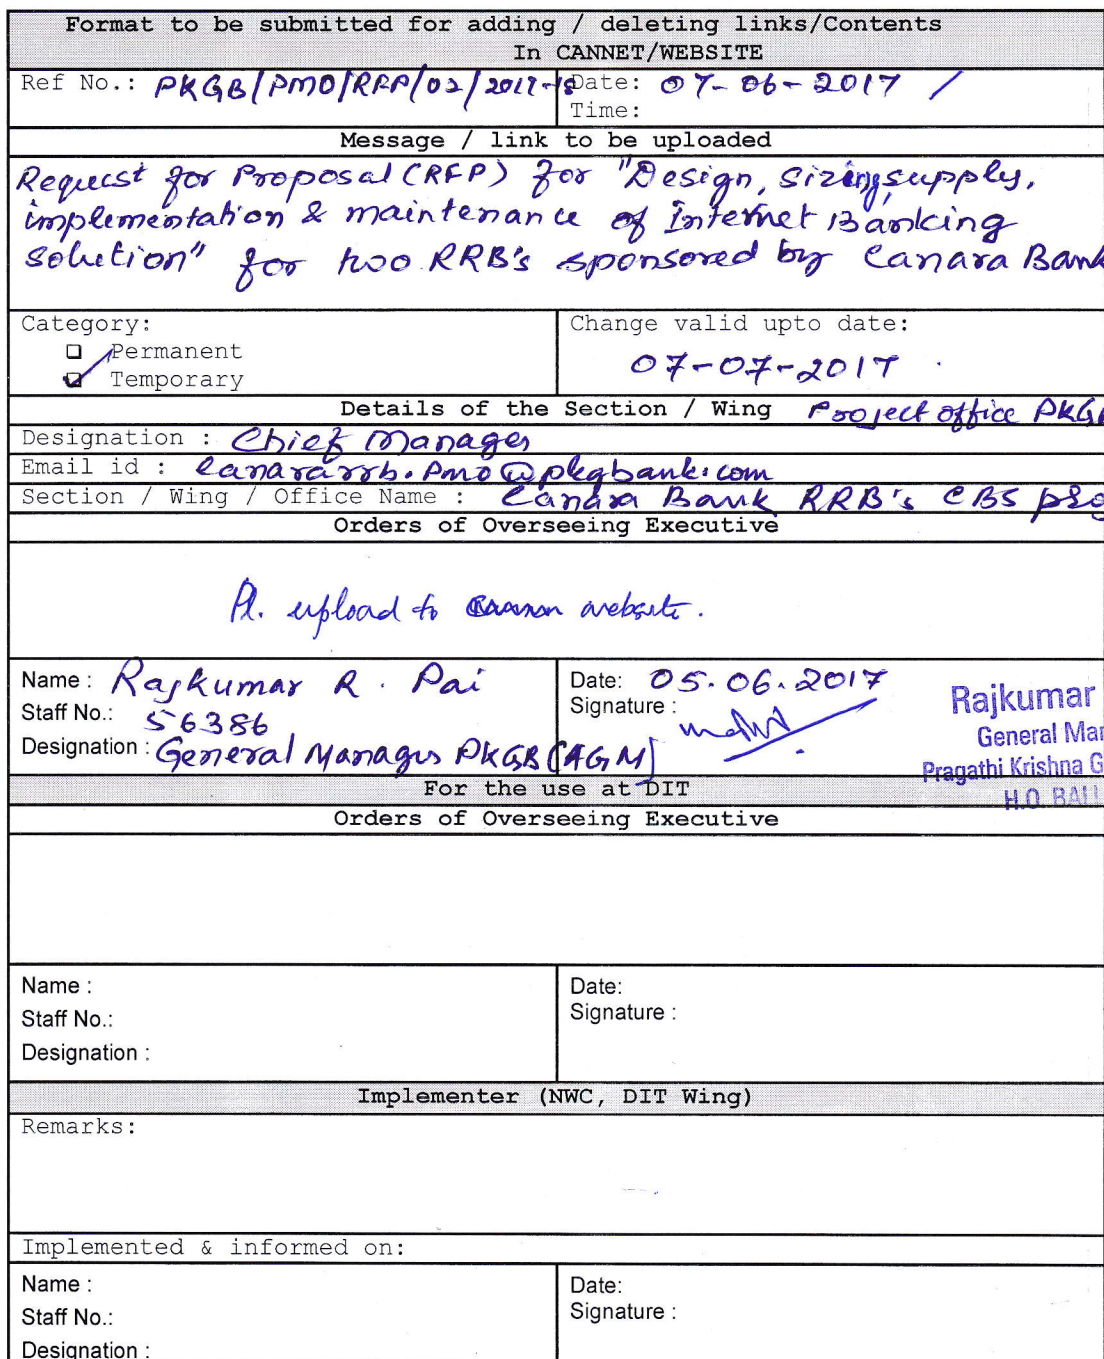 Format to be submitted for adding / deleting links/Contents
In CANNET/WEBSITE
Ref No.: PKGB/PMO/RFP/02/2017-18 Date: 07-06-2017 /
Time:
Message / link to be uploaded
Request for Proposal (RFP) for "Design, sizing, supply,
implementation & maintenance of Internet Banking
Solution" for two RRB's sponsored by Canara Bank
Category: Change valid upto date:
Permanent
07-07-2017
Temporary
Details of the Section / Wing Project office PKGB
Designation : Chief Manager
Email id : canararrb.pmo@pkgbank.com
Section / Wing / Office Name : Canara Bank RRB's CBS pro
Orders of Overseeing Executive
Pl. upload to website.
Name : Rajkumar R. Pai Date: 05.06.2017
Staff No.: 56386 Signature :
Designation : General Manager PKGB (AGM)
Rajkumar
General Man
Pragathi Krishna G
H.O. BALL
For the use at DIT
Orders of Overseeing Executive
Name : Date:
Staff No.: Signature :
Designation :
Implementer (NWC, DIT Wing)
Remarks:
Implemented & informed on:
Name : Date:
Staff No.: Signature :
Designation :